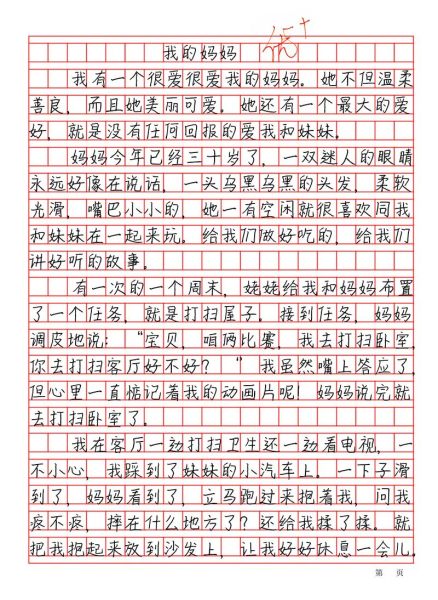 我的妈妈 优+
我有一个很爱很爱我的妈妈。她不但温柔
善良，而且她美丽可爱。她还有一个最大的爱
好，就是没有任何回报的爱我和妹妹。
妈妈今年已经三十岁了，一双迷人的眼睛
永远好像在说话，一头乌黑乌黑的头发，柔软
光滑，嘴巴小小的，她一有空闲就很喜欢同我
和妹妹在一起来玩。给我们做好吃的，给我们
讲好听的故事。
有一次的一个周末，姥姥给我和妈妈布置
了一个任务，就是打扫屋子。接到任务，妈妈
调皮地说：“宝贝，咱俩比赛，我去打扫卧室，
你去打扫客厅好不好？”我虽然嘴上答应了，
但心里一直惦记着我的动画片呢！妈妈说完就
去打扫卧室了。
我在客厅一边打扫卫生还一边看电视，一
不小心，我踩到了妹妹的小汽车上。一下子滑
到了，妈妈看到了，立马跑过来抱着我，问我
疼不疼，摔在什么地方了？还给我揉了揉。就
把我抱起来放到沙发上，让我好好休息一会儿。
第 页